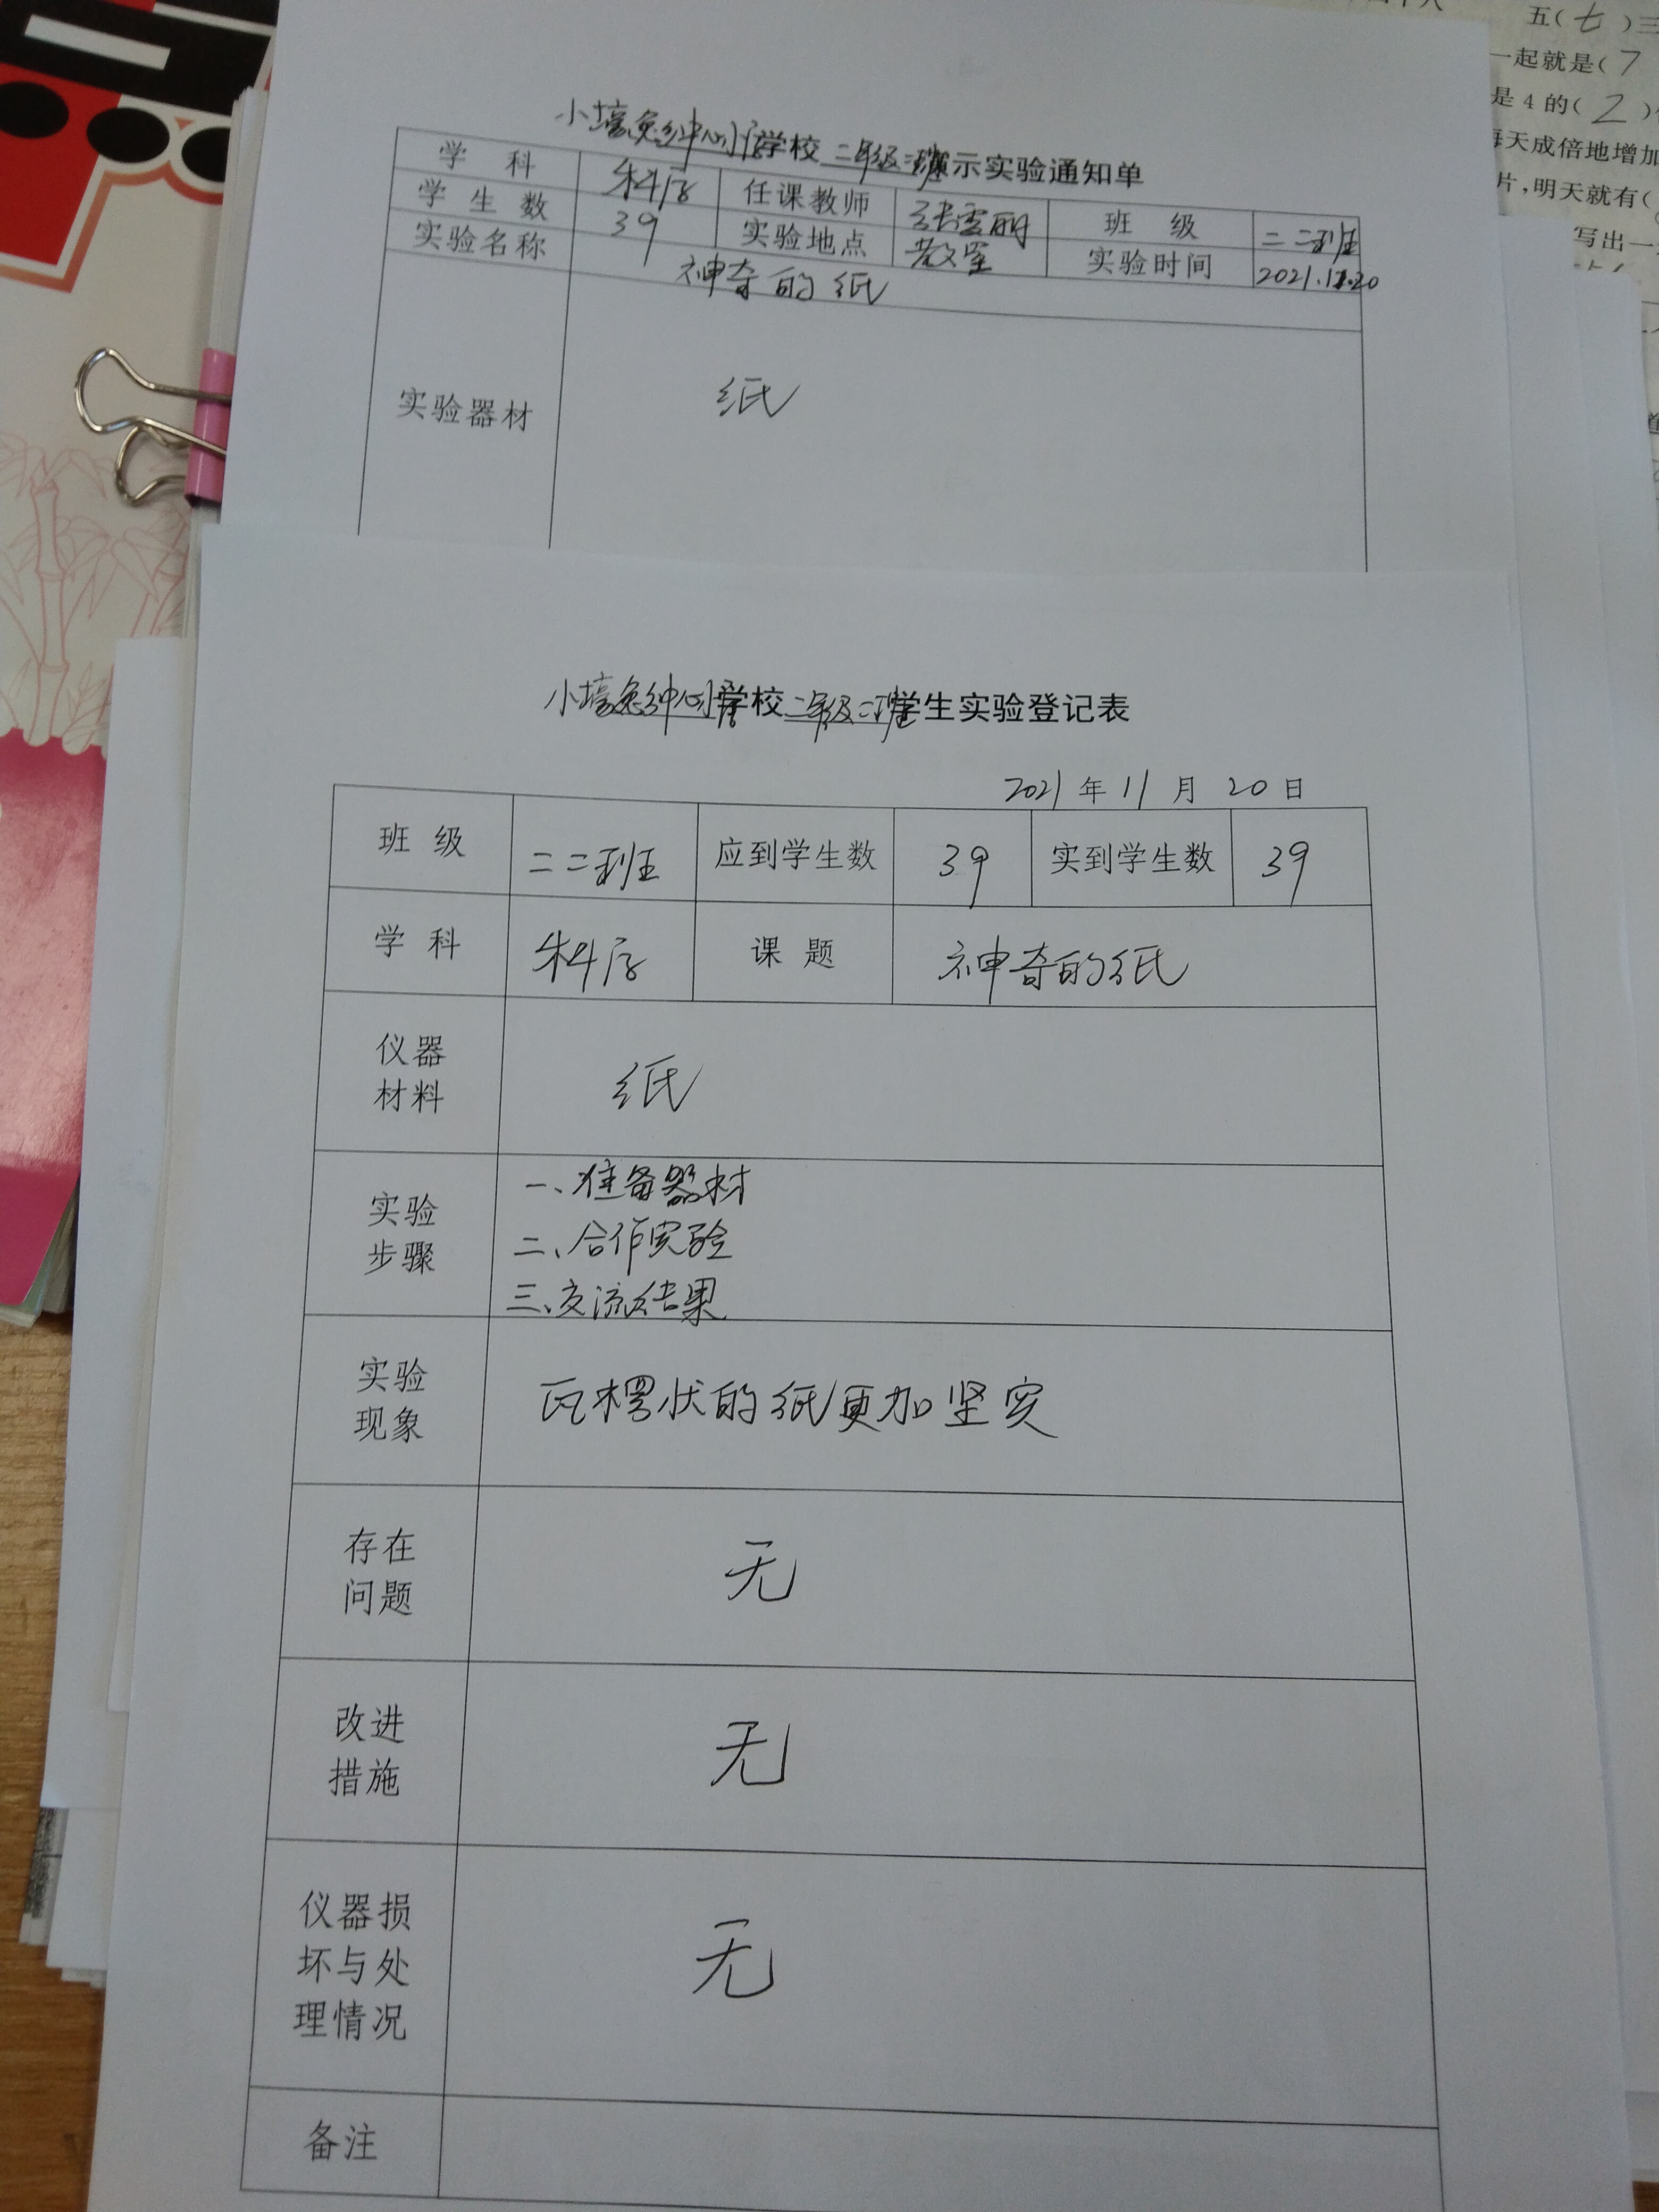 小壕兔纤中心小学校 二年级二班演示实验通知单
学 科 科学 任课教师 张雪丽 班 级 二二班
学 生 数 39 实验地点 教室 实验时间 2021.11.20
实验名称 神奇的纸
实验器材 纸
小壕兔中心小学校二年级二班学生实验登记表
2021 年 11 月 20 日
班 级 二二班 应到学生数 39 实到学生数 39
学 科 科学 课 题 神奇的纸
仪器
材料
纸
实验
步骤
一、准备器材
二、合作实验
三、交流结果
实验
现象
瓦楞状的纸更加坚实
存在
问题
无
改进
措施
无
仪器损
坏与处
理情况
无
备注
五(七)三
一起就是(7
是 4 的(2)
每天成倍地增加
片,明天就有(
写出一